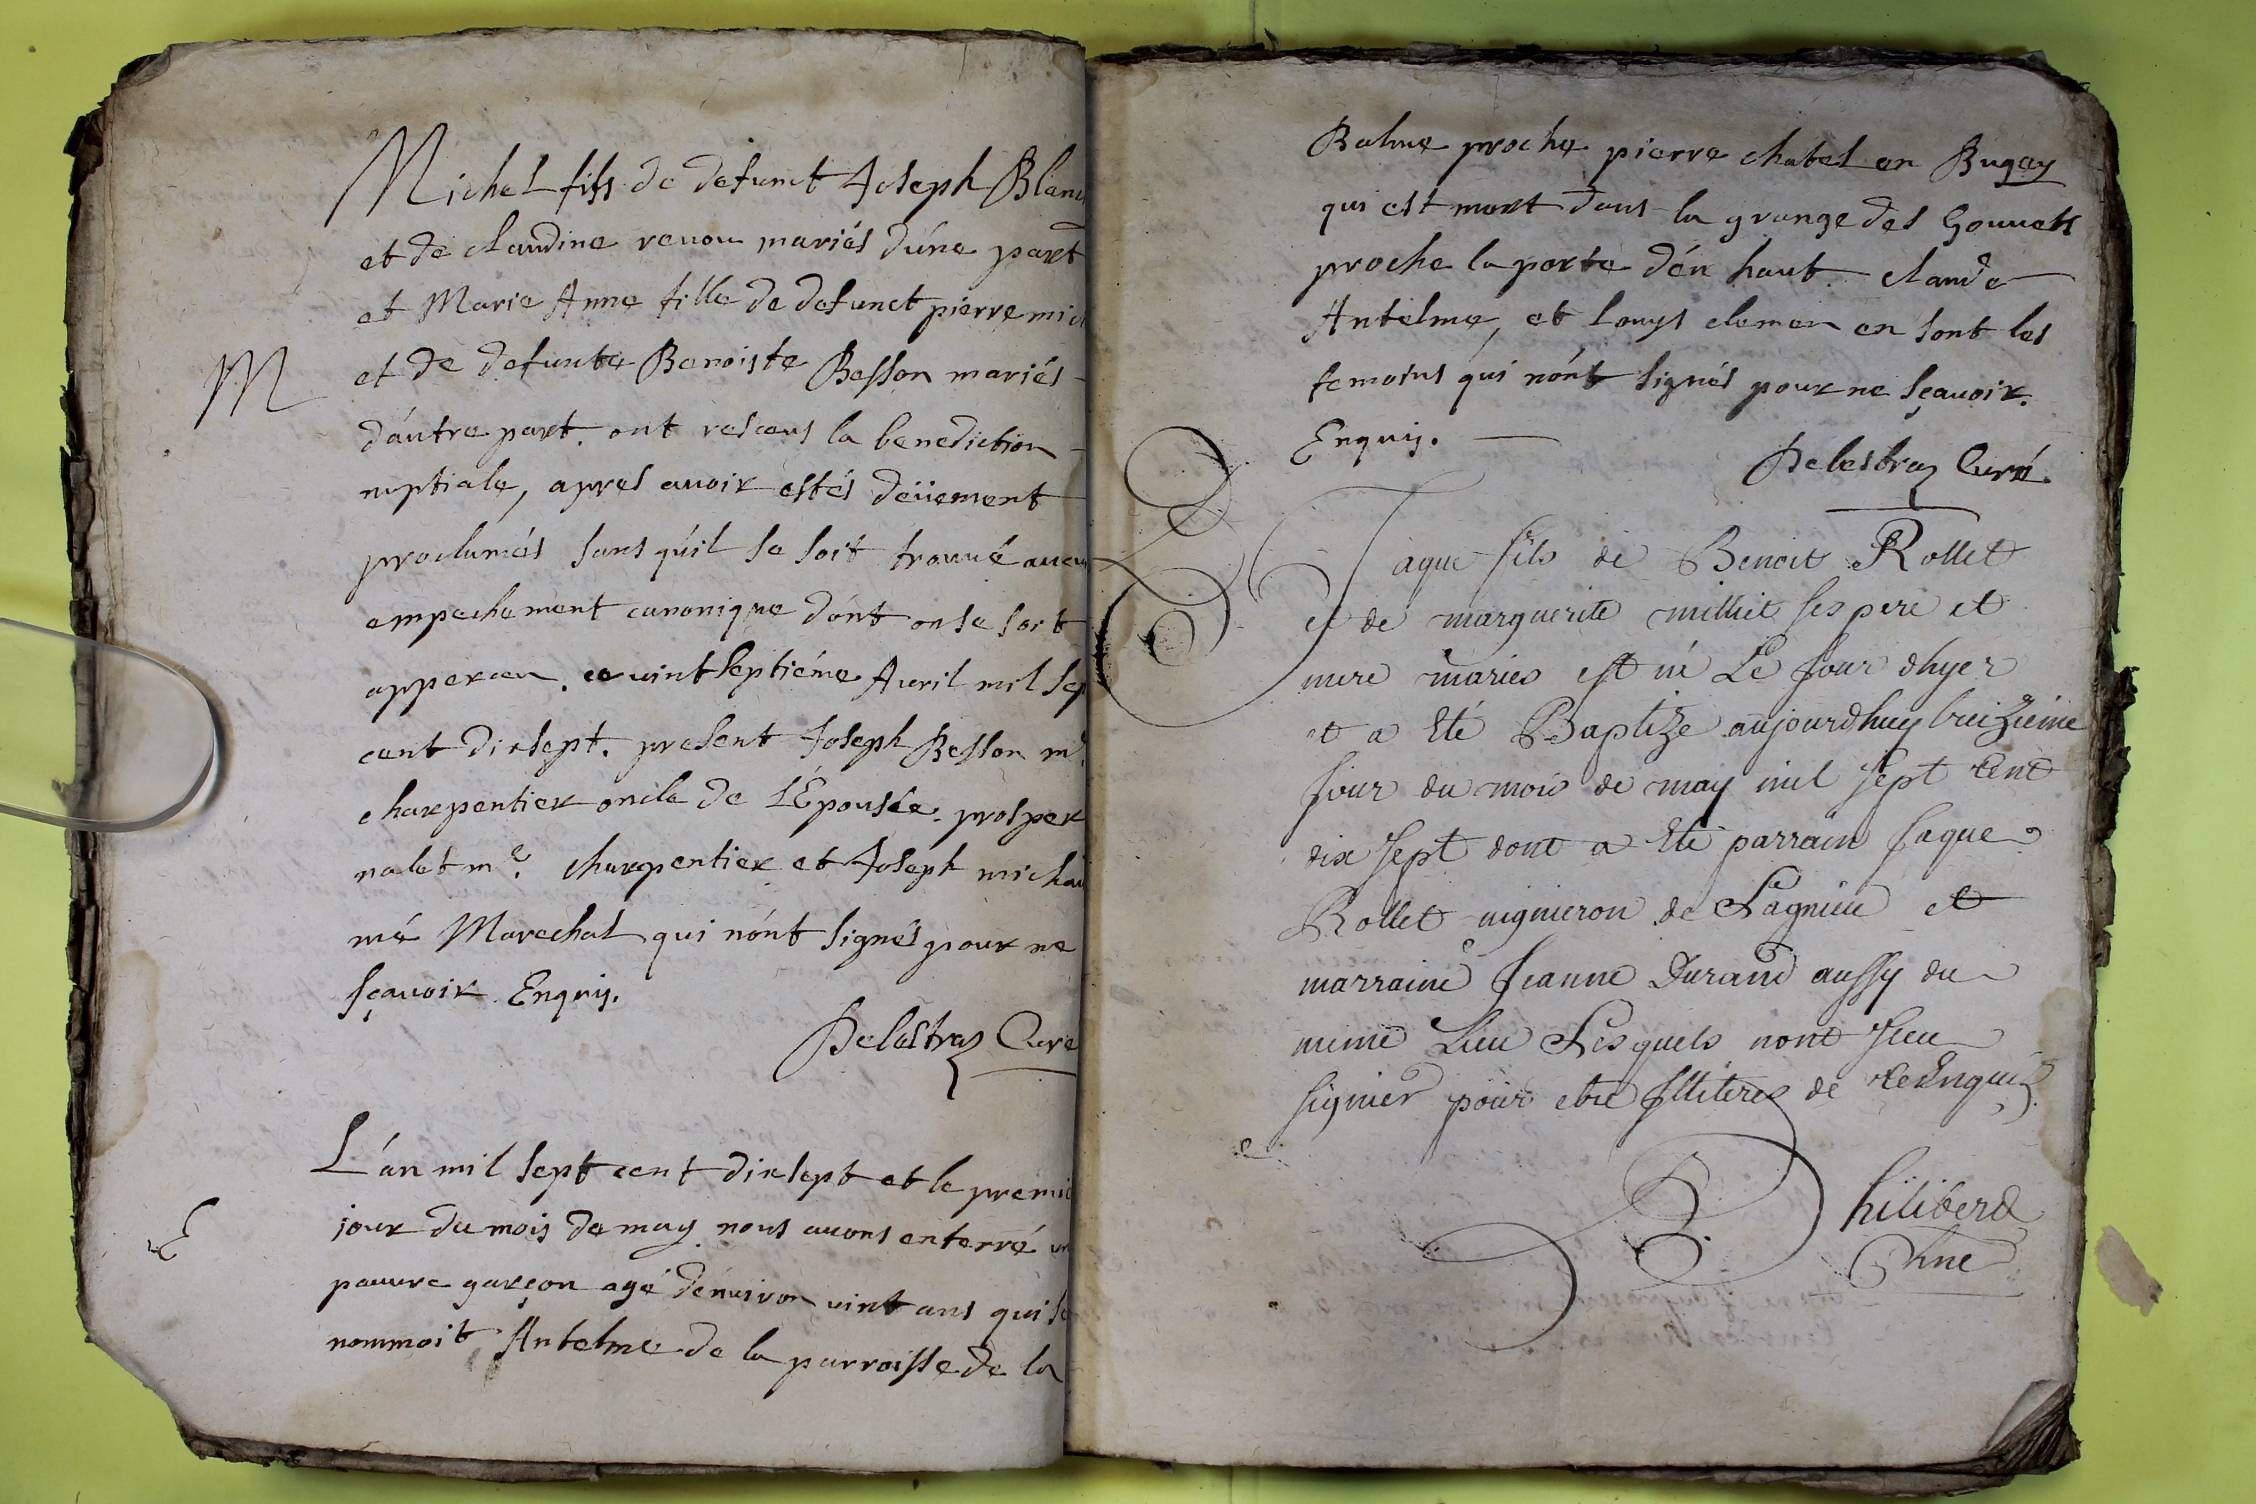 Michel fils de defunct Joseph Blanc
et de claudine renou mariés d'úne part
et Marie Anne fille de defunct pierre mi
M
et de defunte Benoiste Besson mariés
d'áutre part. ont resceus la benediction
nuptiale, apres avoir estés deüement
proclamés sans qu'il se soit trouvé aucu
empechement canonique dont on se soit
apperceu. ce vint septiéme Avril mil sep
cent dixsept. present Joseph Besson me.
charpentier oncle de L'Épousée. prosper
nalet me. charpentier et Joseph michau
mé Marechal qui n'ónt signés pour ne
sçavoir Enquis.
Delestraz Curé
L'án mil sept cent dixsept et le premie
E
jour du mois de may nous avons enterré un
pauvre garçon agé d'énviron vint ans qui se
nommoit Antelme de la parroisse de la
Balme proche pierre chatel en Bugey
qui est mort dans la grange des Gouvets
proche la porte d'én haut. claude
Antelme, et Louys clemen en sont les
temoins qui n'ónt signés pour ne sçavoir.
Enquis.
Delestraz Curé.
Jaque fils de Benoit Rollet
et de marguerite milliet ses pere et
mere mariés est né Le jour d'hyer
et a Eté Baptizé aujourdhuy treizieme
jour du mois de may mil sept cent
dix sept dont a Eté parrain jaque
Rollet vigneron de Lagnieu et
marraine jeanne Durand aussy du
meme Lieu Lesquels nont sceu
signier pour etre jlliterés de ce Enquis.
Philiberd